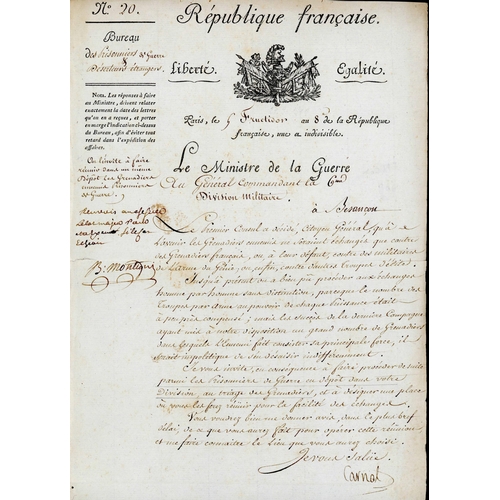 Nº 20.
République française.
Bureau
des Prisonniers de Guerre
Déserteurs étrangers.
Liberté. Egalité.
NOTA. Les réponses à faire
au Ministre, doivent relater
exactement la date des lettres
qu'on a reçues, et porter
en marge l'indication ci-dessus
du Bureau, afin d'éviter tout
retard dans l'expédition des
affaires.
Paris, le 5 Fructidor an 8 de la République
française, une et indivisible.
On l'invite à faire
réunir dans un même
Dépôt les Grenadiers
ennemis Prisonniers
de Guerre.
Le Ministre de la Guerre
Au Général Commandant la 6me
Division Militaire.
à Besançon
B. Montigny
Le Premier Consul a décidé, Citoyen Général, qu'à
l'avenir les Grenadiers ennemis ne seraient échangés que contre
des Grenadiers français, ou à leur défaut, contre des militaires
de l'arme du Génie, ou enfin, contre d'autres troupes d'élite.
Jusqu'à présent on a bien pu procéder aux échanges
homme par homme sans distinction, parceque le nombre des
Troupes par arme au pouvoir de chaque Puissance était
à peu près compensé; mais les succès de la dernière Campagne
ayant mis à notre disposition un grand nombre de Grenadiers
dans lesquels l'Ennemi fait consister sa principale force, il
serait impolitique de s'en désaisir indifféremment.
Je vous invite, en conséquence à faire procéder de suite
parmi les Prisonniers de Guerre en dépôt dans votre
Division, au triage des Grenadiers, et à désigner une place
où vous les ferez réunir pour la facilité des échanges.
Vous voudrez bien me donner avis, dans le plus bref
délai, de ce que vous aurez fait pour opérer cette réunion
et me faire connaître le lieu que vous aurez choisi.
Je vous salue
Carnot